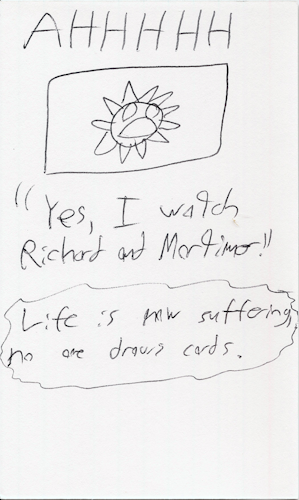 AHHHHHH
"Yes, I watch
Richard and Mortimer!"
Life is now suffering,
no one draws cards.